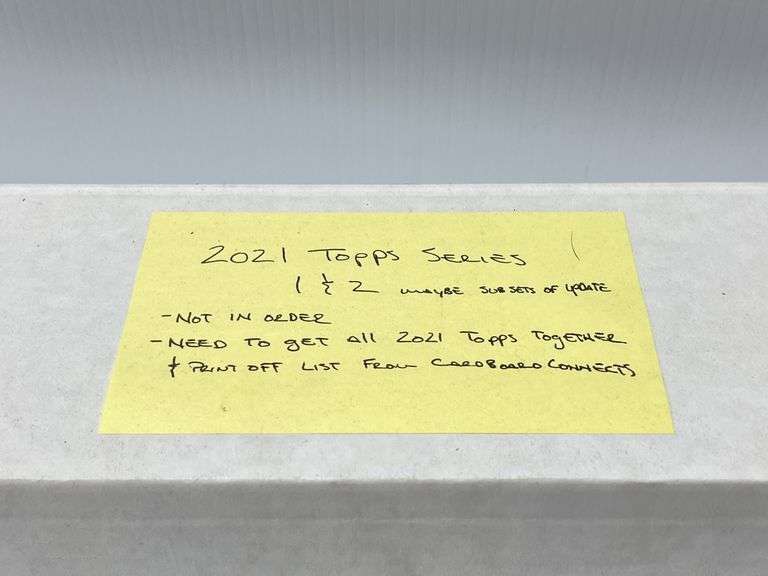 2021 Topps SERIES
1 & 2 MAYBE SUBSETS OF UPDATE
- NOT IN ORDER
- NEED TO GET All 2021 Topps TOGETHER
& PRINT OFF LIST FROM CARDBOARDCONNECTS